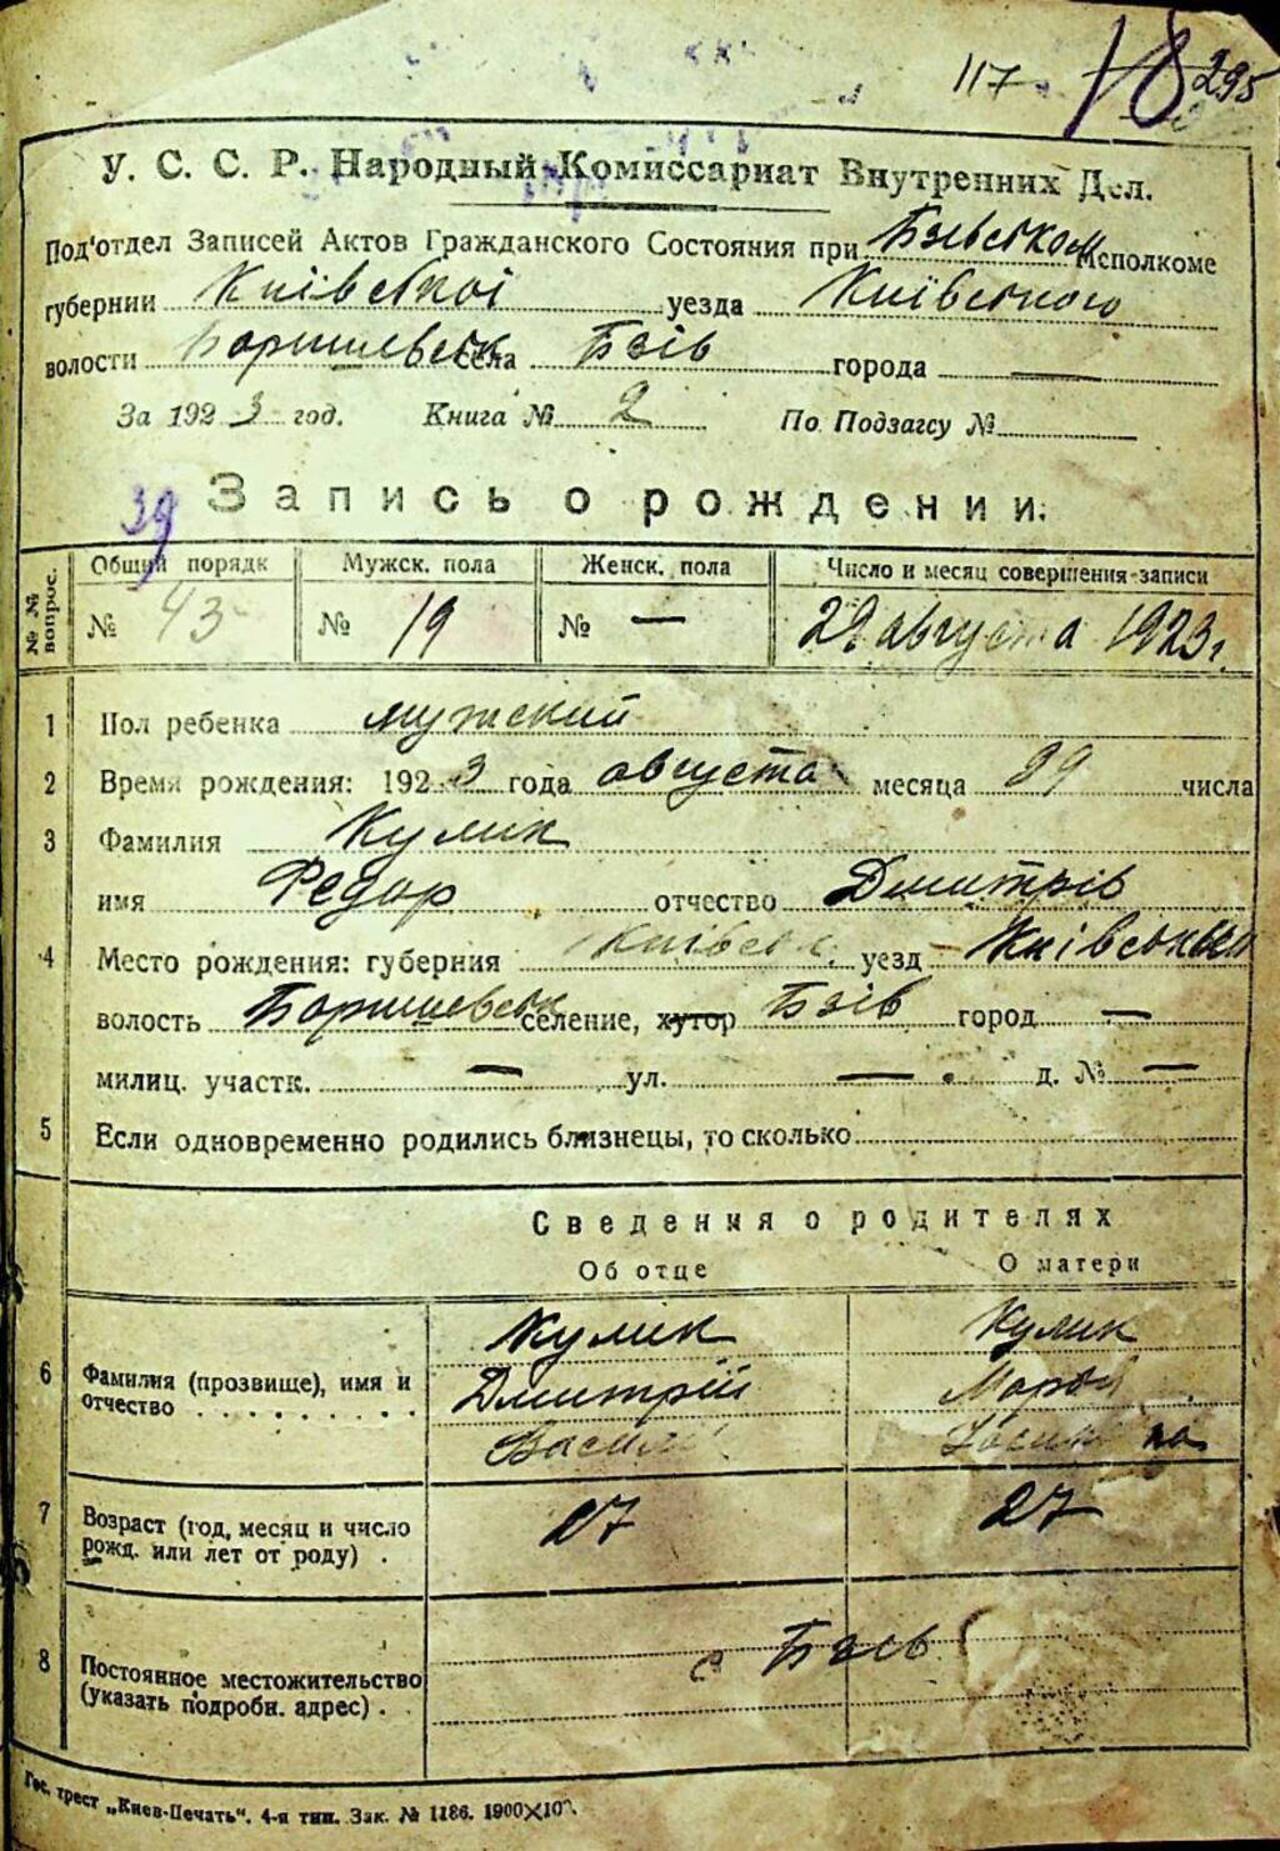 117 18 295
У. С. С. Р. Народный Комиссариат Внутренних Дел.
Под'отдел Записей Актов Гражданского Состояния при Бзівськом Исполкоме
губернии Київської уезда Київського
волости Боришевськ села Бзів города —
За 1923 год. Книга № 2 По Подзагсу №
39
Запись о рождении.
№№ вопрос. Общий порядк Мужск. пола Женск. пола Число и месяц совершения записи
№ 43 № 19 № — 29 августа 1923 г.
1 Пол ребенка мужский
2 Время рождения: 1923 года августа месяца 29 числа
3 Фамилия Кулик
имя Федор отчество Дмитрів
4 Место рождения: губерния Київськ. уезд Київський
волость Боришевськ селение, хутор Бзів город —
милиц. участк. — ул. — д. № —
5 Если одновременно родились близнецы, то сколько
Сведения о родителях
Об отце О матери
Кулик Кулик
6 Фамилия (прозвище), имя и Дмитрій
отчество
7 Возраст (год, месяц и число 27 27
рожд. или лет от роду) .
с Бзів
8 Постоянное местожительство
(указать подробн. адрес) .
Гос. трест „Киев-Печать". 4-я тип. Зак. № 1186. 1900×10